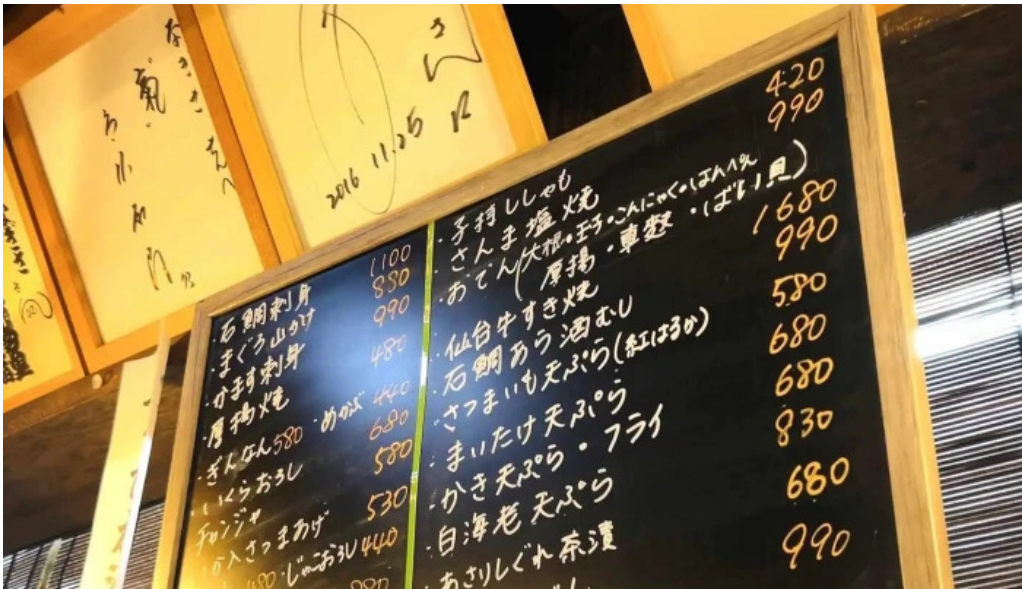 さん江
2016 11.25
・石鯛刺身 1100
・まぐろ山かけ 880
・かます刺身 990
・厚揚焼 480
・ぎんなん580 ・めかぶ 440
・いくらおろし 680
・チャンジャ 580
入さつまあげ 530
480・じゃこおろし 440
880
・子持ししゃも 420
・さんま塩焼 990
・おでん(大根・玉子・こんにゃく・はんぺん
厚揚・車麩・ばい貝)
・仙台牛すき焼 1680
・石鯛あら酒むし 990
・さつまいも天ぷら(紅はるか) 580
・まいたけ天ぷら 680
・かき天ぷら・フライ 680
・白海老天ぷら 830
・あさりしぐれ茶漬 680
990